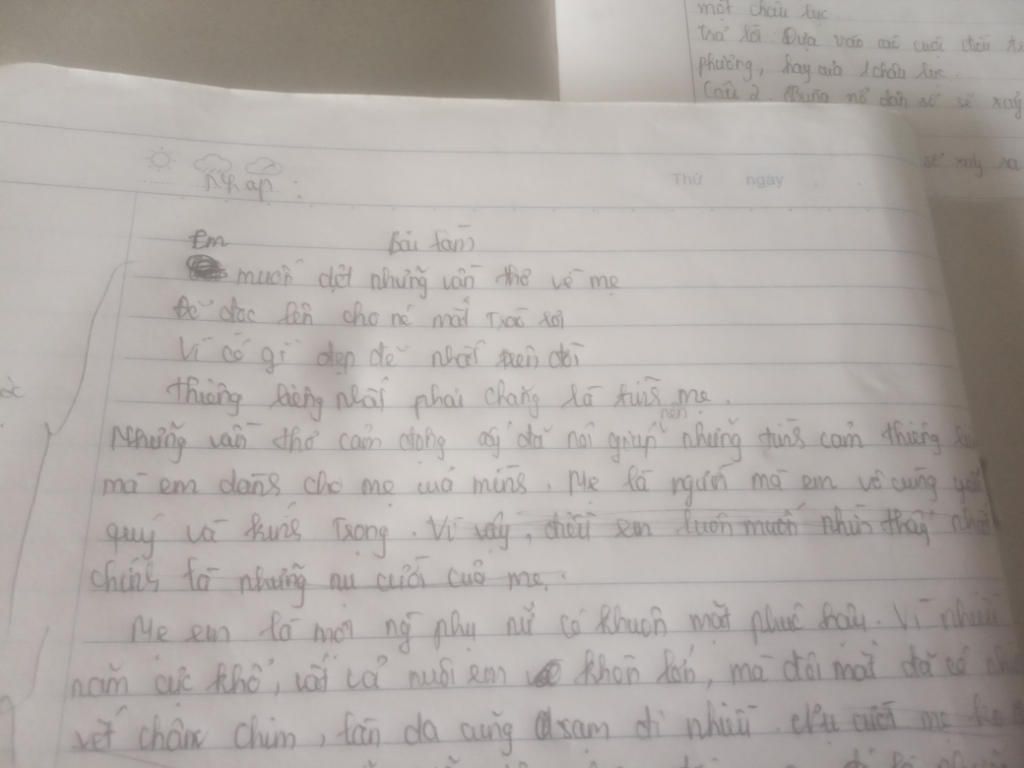 một châu lục
trả lời Dựa vào
phương, hay của 1 châu lục.
Câu 2 Bùng nổ dân số sẽ xảy
sẽ xảy ra
Thứ ngày
Nháp :
Em Bài làm
muốn dệt những vần thơ về mẹ
Để đọc lên cho mẹ mãi
Vì có gì đẹp đẽ nhất trên đời
thiêng liêng nhất phải chăng là tình mẹ.
Những vần thơ cảm động ấy đã nói giúp nên những tình cảm thiêng
mà em dành cho mẹ của mình. Mẹ là người mà em vô cùng yêu
quý và kính trọng. Vì vậy, điều em luôn muốn nhìn thấy nhất
chính là những nụ cười của mẹ.
Mẹ em là một ng phụ nữ có khuôn mặt phúc hậu. Vì nhiều
năm cực khổ, vất vả nuôi em khôn lớn, mà đôi mắt đã có
vết chân chim, làn da cũng sạm đi nhiều. Nụ cười mẹ